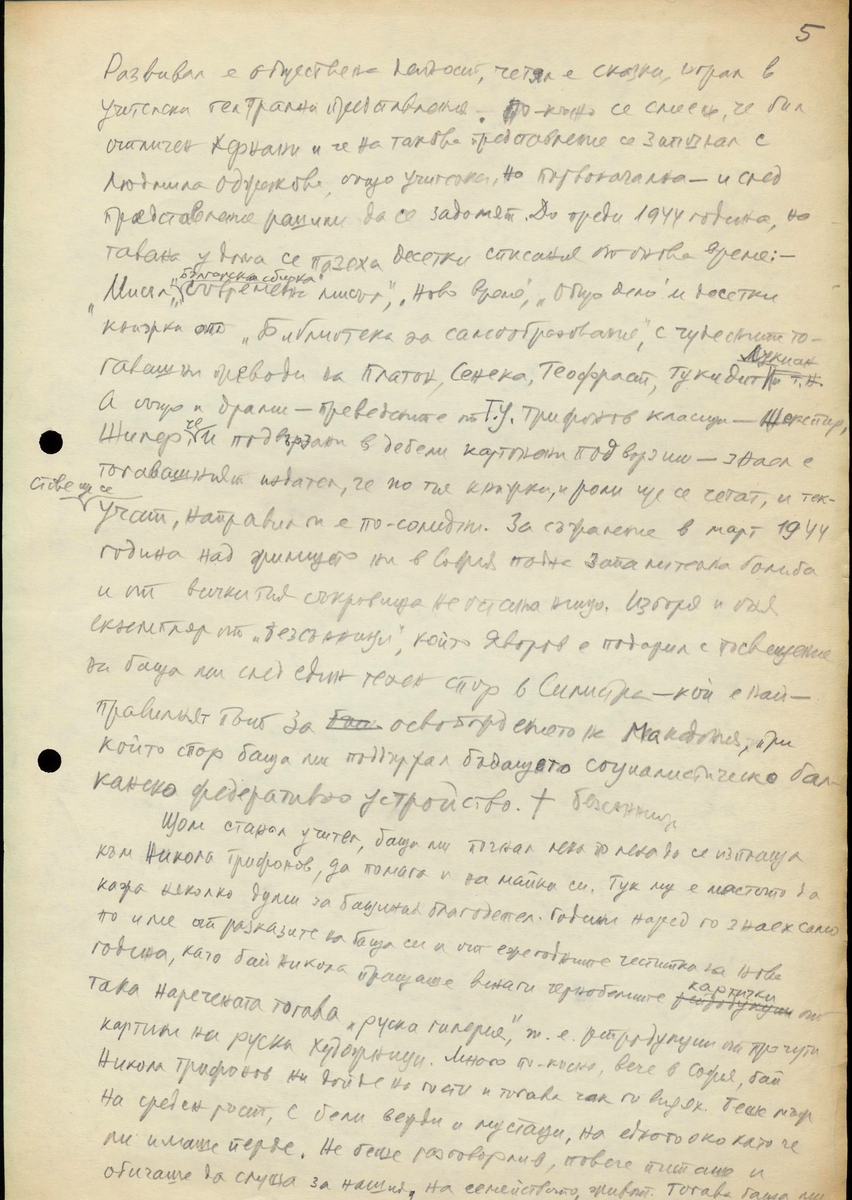 5
Развивал е обществена дейност, четял е сказки, играл в
учителски театрални представления. По-късно се смееше, че бил
отличен Хернани и че на такова представление се запознал с
Людмила Оджакова, също учителка, но първоначална — и след
представление решили да се задомят. До преди 1944 година, на
тавана у дома се пазеха десетки списания от онова време: —
"Мисъл", "Българска сбирка", "Съвременна мисъл", "Ново време", "Общо дело" и десетки
книжки от "Библиотека за самообразование", с чудесните то-
гавашни преводи на Платон, Сенека, Теофраст, Тукидит, Лукиан и т.н.
А също и драми — преведените от Т.Ц. Трифонов класици — Шекспир,
Шилер и подвързани в дебели картонени подвързии — знаел е
тогавашният издател, че по тия книжки, и роли ще се четат, и тек-
стове ще се учат, направил ги е по-солидни. За съжаление в март 1944
година над жилището ни в София падна запалителна бомба
и от всички тия съкровища не остана нищо. Изгоря и оня
екземпляр от "Безсъници", който Яворов е подарил с посвещение
на баща ми след един техен спор в Силистра — кой е най-
правилният път за освобождението на Македония, при
който спор баща ми поддържал бъдещето социалистическо бал-
канско федеративно устройство. + безсъници
Щом станал учител, баща ми почнал лека по лека да се изплаща
към Никола Трифонов, да помага и на майка си. Тук му е мястото да
кажа няколко думи за бащиния благодетел. Години наред го знаех само
по име от разказите на баща си и от ежегодните честитки за Нова
година, като бай Никола пращаше винаги чернобелите картички от
така наречената тогава "руска галерия", т. е. репродукции от прочути
картини на руски художници. Много по-късно, вече в София, бай
Никола Трифонов ни дойде на гости и тогава чак го видях. Беше мъж
на среден ръст, с бели вежди и мустаци, на едното око като че
ли имаше перде. Не беше разговорлив, повече питаше и
обичаше да слуша за нашия, на семейството, живот. Тогава баща ми